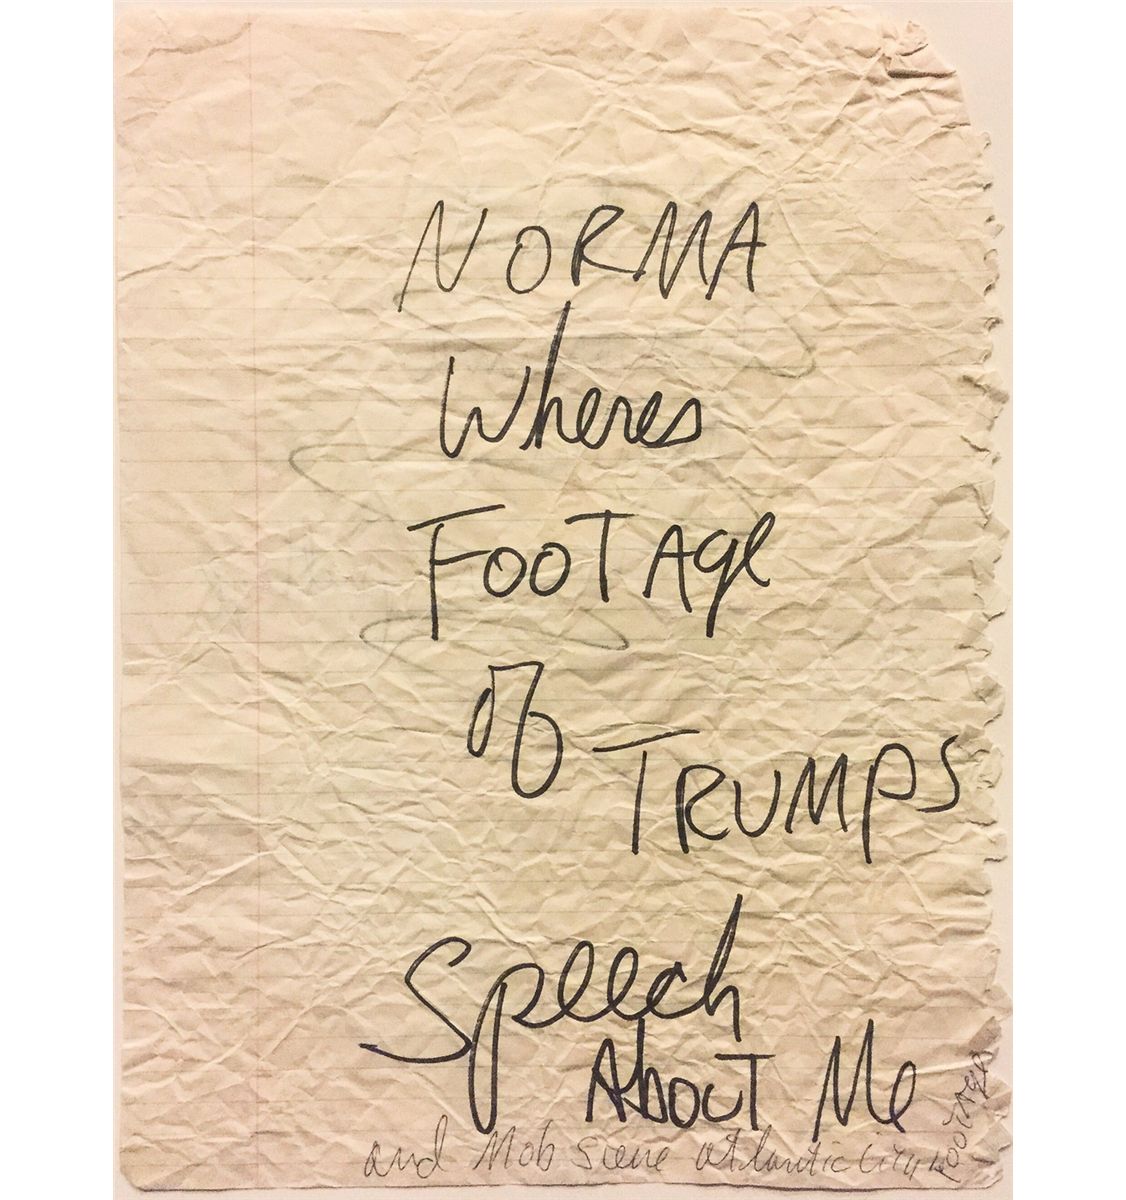 NORMA
Wheres
FooTAge
of
TRUMPS
Speech
AbouT Me
and Mob Scene atlantic City
footage